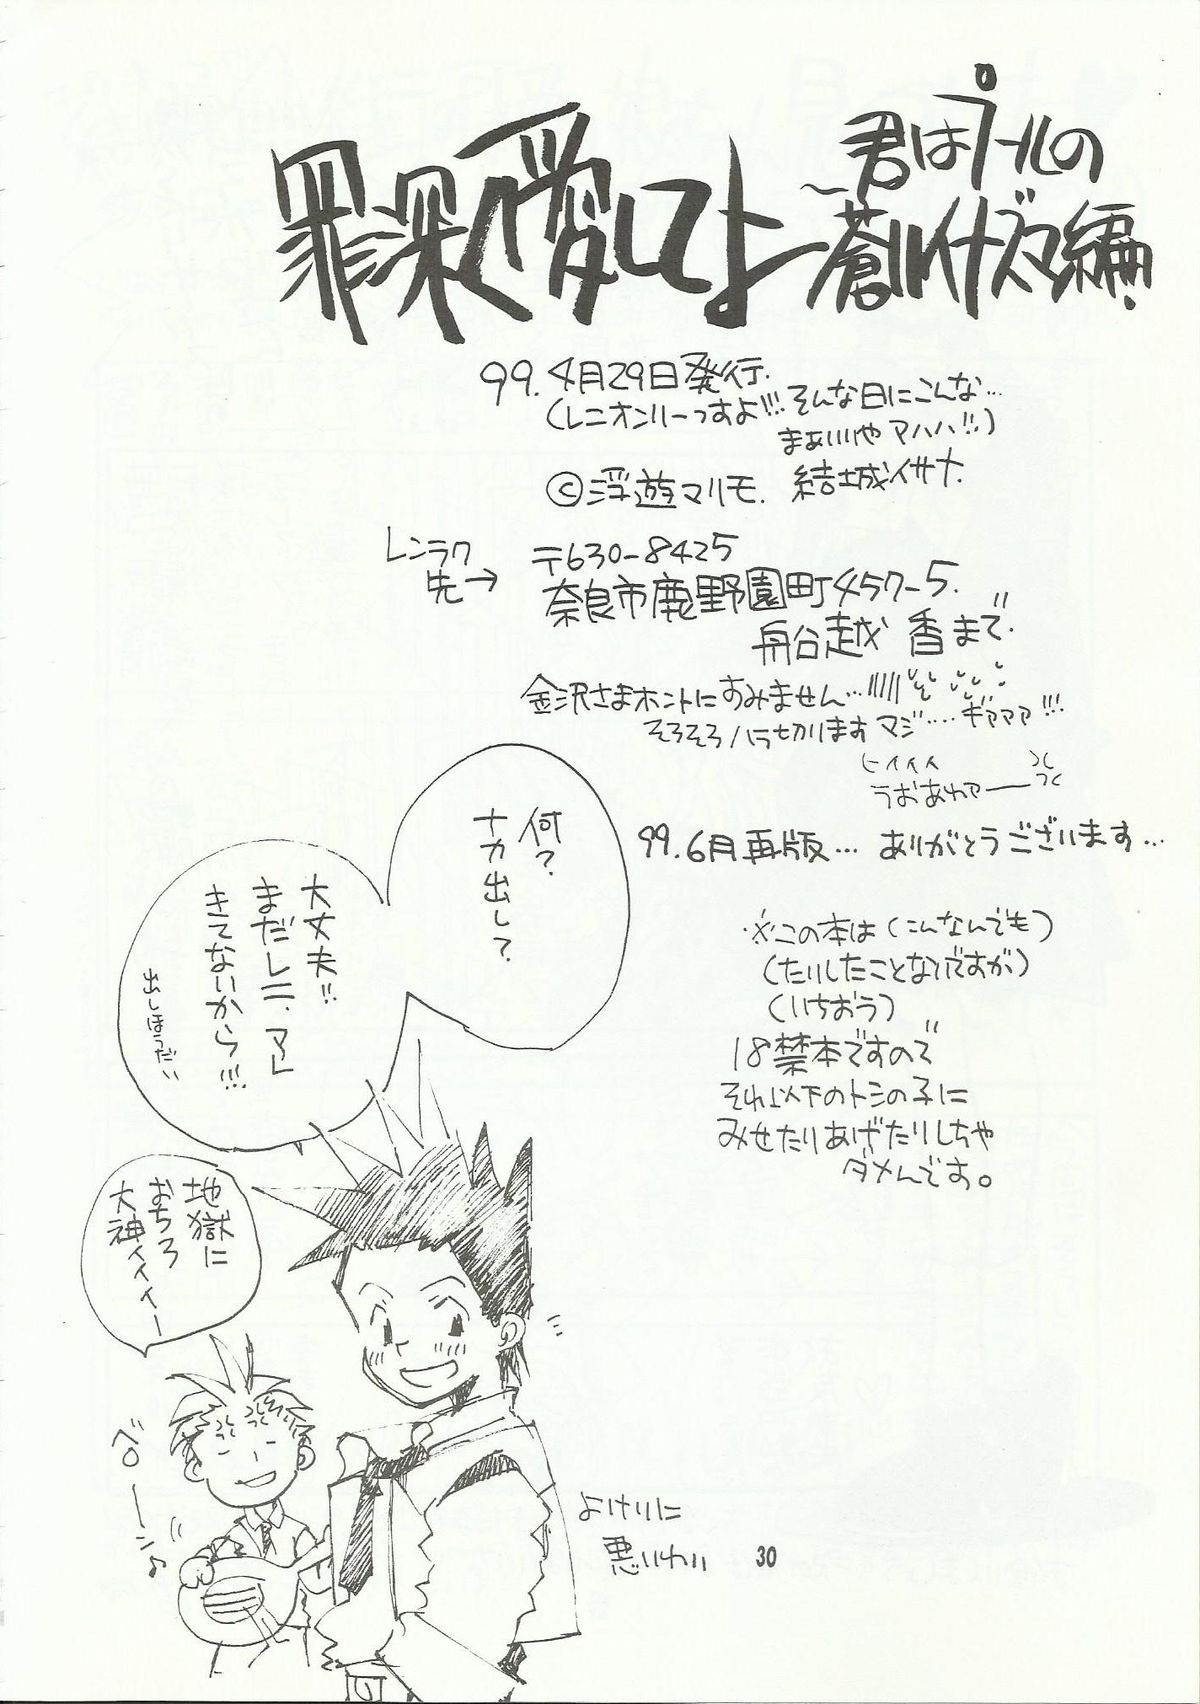 罪深く愛してよ
君はプールの
～蒼いイナズマ編
99.4月29日発行.
(レニオンリーっすよ!!! そんな日にこんな…
まぁいいや アハハ!!)
©浮遊マリモ. 結城イサナ.
レンラク
先→
〒630-8425
奈良市鹿野園町457-5.
舟谷越 香まで.
金沢さまホントにすみません…
そろそろハラ切りますマジ…. ギァァァァ!!!
ヒィィィ
うおあわァー
99.6月再版… ありがとうございます…
※この本は(こんなんでも)
(たいしたことないですが)
(いちおう)
18禁本ですので
それ以下のトシの子に
みせたりあげたりしちゃ
ダメんです。
地獄に
おちろ
大神ィィィー
ベローン♪
よけいに
悪いわい
30